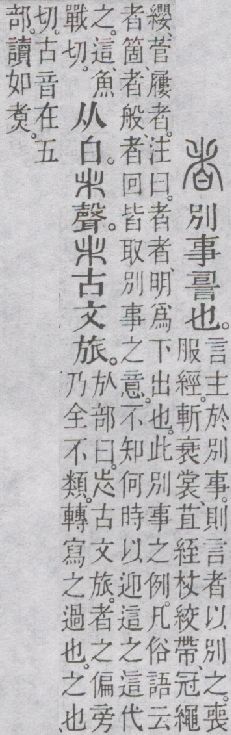 者別事䛐也。言主於別事。則言者以別之。喪
服經。斬衰裳、苴絰杖絞帶、冠繩
纓、菅屨者。注曰。者者、明爲下出也。此別事之例。凡俗語云
者箇、者般、者回皆取別事之意。不知何時以迎這之這代
之。這、魚
戰切。
从白。聲。古文旅。㫃部曰。古文旅。者之偏旁
乃全不類。轉寫之過也。之也
切。古音在五
部。讀如煑。